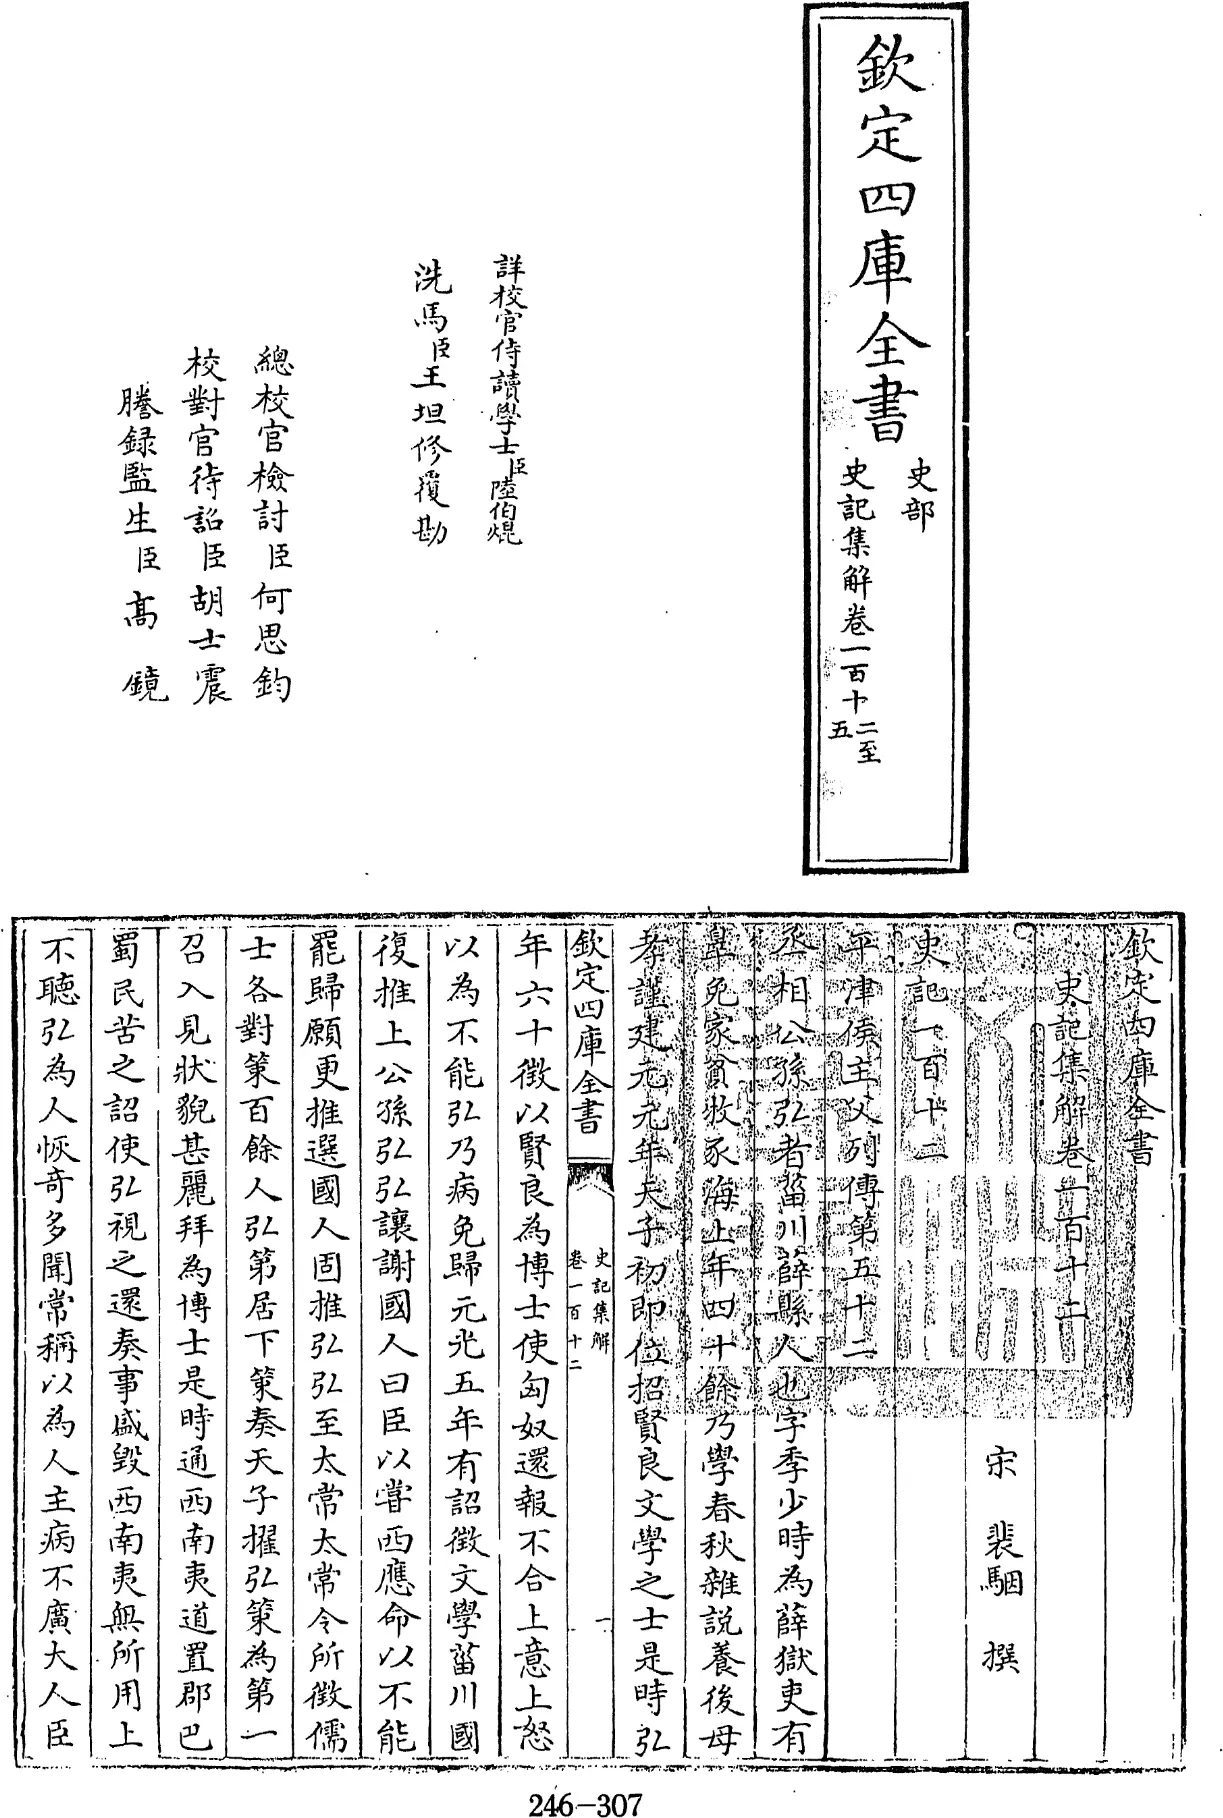 欽定四庫全書
史部
史記集解卷一百十二至五
詳校官侍讀學士臣陸伯焜
洗馬臣王坦修覆勘
總校官檢討臣何思鈞
校對官待詔臣胡士震
謄錄監生臣高鏡
欽定四庫全書
史記集解卷一百十二
宋 裴駰 撰
史記一百十二
平津侯主父列傳第五十二
丞相公孫弘者菑川薛縣人也字季少時為薛獄吏有
辠免家貧牧豕海上年四十餘乃學春秋雜說養後母
孝謹建元元年天子初即位招賢良文學之士是時弘
欽定四庫全書
史記集解
卷一百十二
一
年六十徵以賢良為博士使匈奴還報不合上意上怒
以為不能弘乃病免歸元光五年有詔徵文學菑川國
復推上公孫弘弘讓謝國人曰臣以嘗西應命以不能
罷歸願更推選國人固推弘弘至太常太常令所徵儒
士各對策百餘人弘第居下策奏天子擢弘策為第一
召入見狀貌甚麗拜為博士是時通西南夷道置郡巴
蜀民苦之詔使弘視之還奏事盛毀西南夷無所用上
不聽弘為人恢奇多聞常稱以為人主病不廣大人臣
246-307